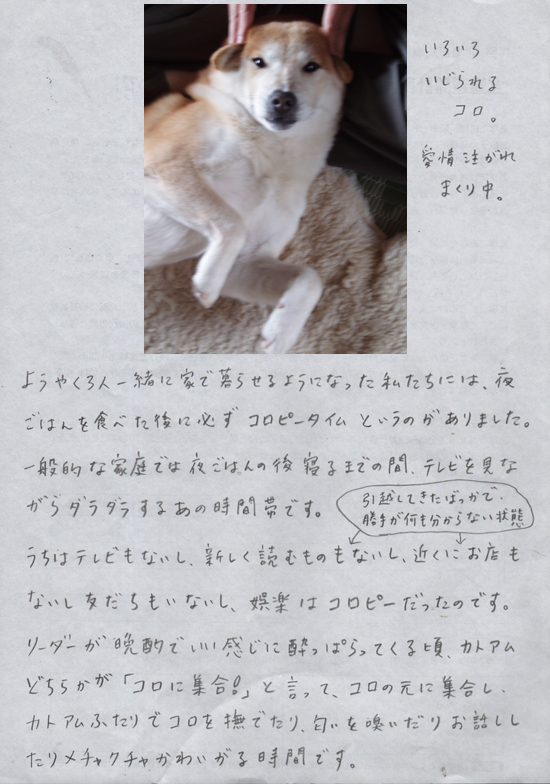 いろいろ
いじられる
コロ。
愛情注がれ
まくり中。
ようやく3人一緒に家で暮らせるようになった私たちには、夜
ごはんを食べた後に必ずコロピータイムというのがありました。
一般的な家庭では夜ごはんの後寝るまでの間、テレビを見な
がらダラダラするあの時間帯です。
引越してきたばっかで、
勝手が何も分からない状態
うちはテレビもないし、新しく読むものもないし、近くにお店も
ないし友だちもいないし、娯楽はコロピーだったのです。
リーダーが晩酌でいい感じに酔っぱらってくる頃、カトアム
どちらかが「コロに集合!」と言って、コロの元に集合し、
カトアムふたりでコロを撫でたり、匂いを嗅いだりお話しし
たりメチャクチャかわいがる時間です。